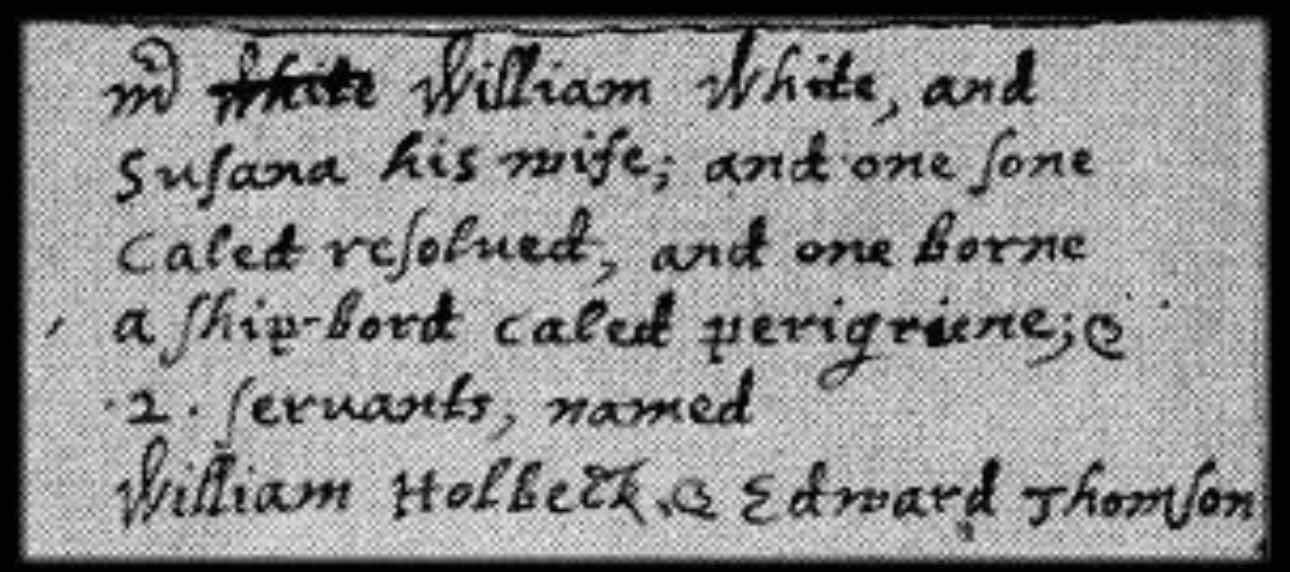 mr white William White, and
Susana his wife; and one sone
Caled resolved, and one borne
a ship-bord caled perigriene; &
·2· servants, named
William Holbeck & Edward Thomson